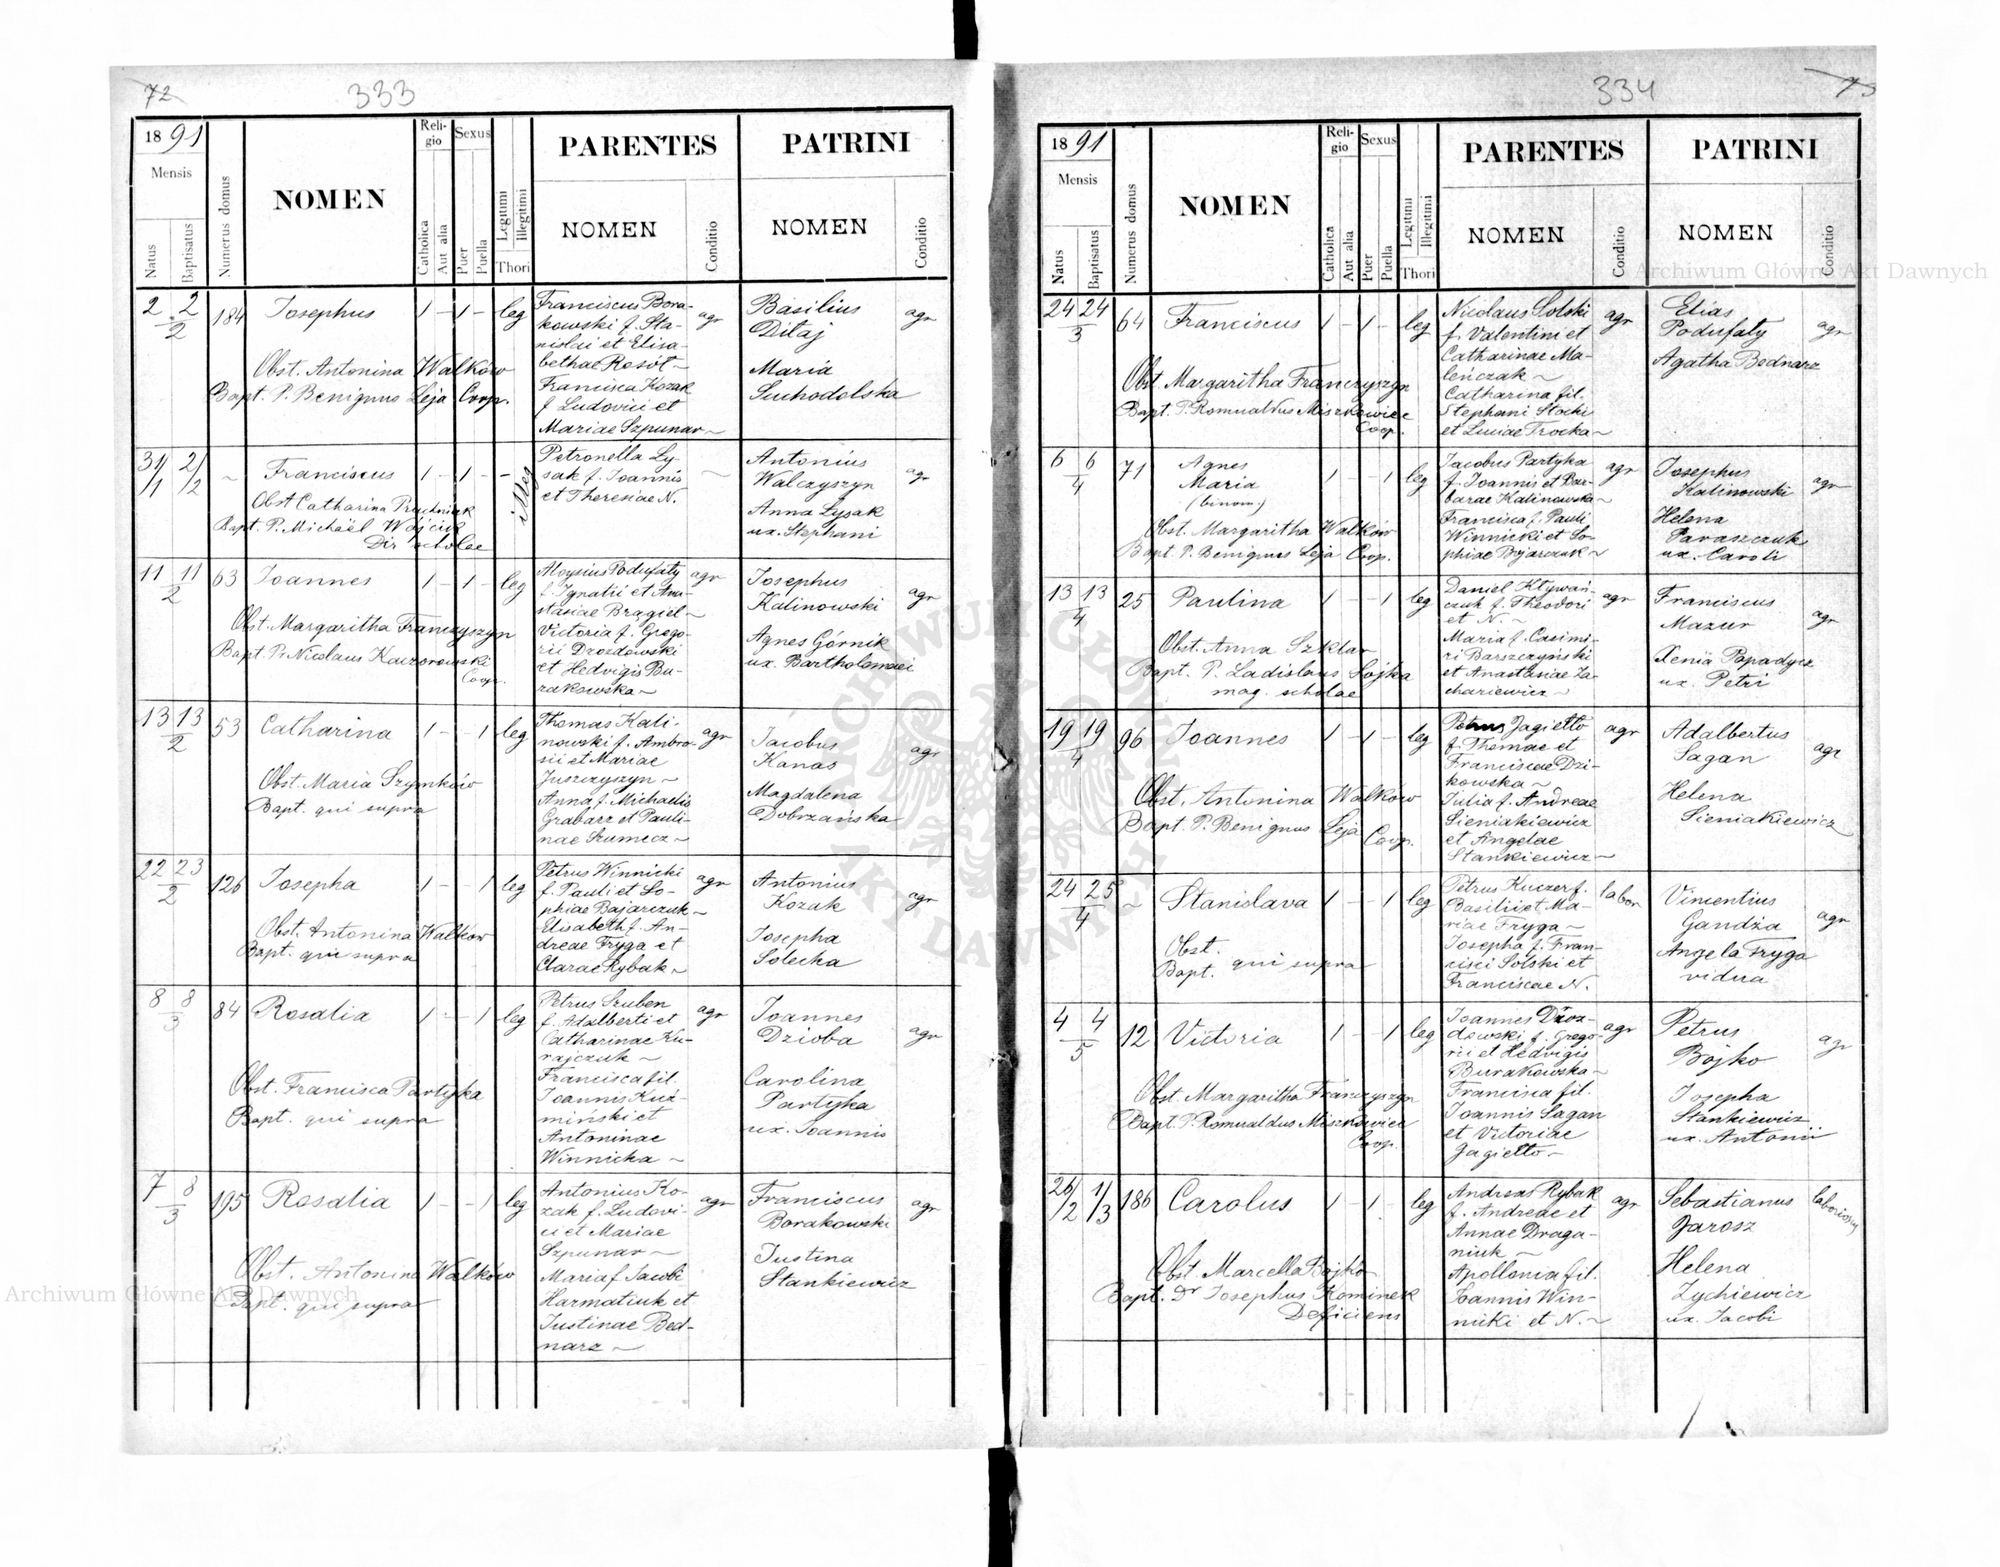 72
333
18 91
Mensis
Natus
Baptisatus
Numerus domus
NOMEN
Reli-
gio
Catholica
Aut alia
Sexus
Puer
Puella
Legitimi
Illegitimi
Thori
PARENTES
NOMEN
Conditio
PATRINI
NOMEN
Conditio
2 2/2 184 Josephus 1 - 1 - leg
Franciscus Bora-
kowski f. Sta-
nislai et Elisa-
bethae Rosół ~
Francisca Kozak
f Ludovici et
Mariae Szpunar ~
agr
Basilius
Ditaj
Maria
Suchodolska
agr
Obst. Antonina Walków
Bapt. P. Benignus Leja Coop.
31/1 2/2 ~ Franciscus 1 - 1 - - illeg
Petronella Ły-
sak f. Joannis
et Theresiae N.
~
Antonius
Walczyszyn
Anna Łysak
ux. Stephani
agr
Obst Catharina Pruchniak
Bapt. P. Michaël Wójcik
Dir scholae
11 11/2 63 Joannes 1 - 1 - leg
Aloysius Podufały
f. Ignatii et Ana-
stasiae Brągiel ~
Victoria f. Grego-
rii Drozdowski
et Hedvigis Bu-
rakowska ~
agr
Josephus
Kalinowski
Agnes Górnik
ux. Bartholomaei
agr
Obst. Margaritha Franczyszyn
Bapt. P. Nicolaus Kaczorowski
Coop.
13 13/2 53 Catharina 1 - - 1 leg
Thomas Kali-
nowski f. Ambro-
sii et Mariae
Juszczyszyn ~
Anna f. Michaelis
Grabarz et Pauli-
nae Szumecz ~
agr
Jacobus
Kanas
Magdalena
Dobrzańska
agr
Obst. Maria Szymków
Bapt. qui supra
22 23/2 126 Josepha 1 - - 1 leg
Petrus Winnicki
f. Pauli et So-
phiae Bajarczuk ~
Elisabeth f. An-
dreae Fryga et
Clarae Rybak ~
agr
Antonius
Kozak
Josepha
Solecka
agr
Obst. Antonina Walków
Bapt. qui supra
8 8/3 84 Rosalia 1 - - 1 leg
Petrus Szuben
f. Adalberti et
Catharinae Ku-
rajczuk ~
Francisca fil.
Joannis Kuź-
miński et
Antoninae
Winnicka ~
agr
Joannes
Dzioba
Carolina
Partyka
ux. Joannis
agr
Obst. Francisca Partyka
Bapt. qui supra
7 8/3 195 Rosalia 1 - - 1 leg
Antonius Ko-
zak f. Ludovi-
ci et Mariae
Szpunar ~
Maria f Jacobi
Harmatiuk et
Justinae Bed-
narz ~
agr
Franciscus
Borakowski
Justina
Stankiewicz
agr
Obst. Antonina Walków
Bapt. qui supra
334
73
18 91
Mensis
Natus
Baptisatus
Numerus domus
NOMEN
Reli-
gio
Catholica
Aut alia
Sexus
Puer
Puella
Legitimi
Illegitimi
Thori
PARENTES
NOMEN
Conditio
PATRINI
NOMEN
Conditio
24 24/3 64 Franciscus 1 - 1 - leg
Nicolaus Solski
f. Valentini et
Catharinae Ma-
leńczak ~
Catharina fil.
Stephani Stocki
et Luciae Trocka ~
agr
Elias
Podufały
Agatha Bednarz
agr
Obst. Margaritha Franczyszyn
Bapt. P. Romualdus Miszkiewicz
Coop.
6 6/4 71 Agnes
Maria
(binom.)
1 - - 1 leg
Jacobus Partyka
f. Joannis et Bar-
barae Kalinowska ~
Francisca f. Pauli
Winnicki et So-
phiae Bajarczuk ~
agr
Josephus
Kalinowski
Helena
Paraszczuk
ux. Caroli
agr
Obst. Margaritha Walków
Bapt P. Benignus Leja Coop.
13 13/4 25 Paulina 1 - - 1 leg
Daniel Kływań-
czuk f. Theodori
et N. ~
Maria f. Casimi-
ri Barszczyński
et Anastasiae Za-
chariewicz ~
agr
Franciscus
Mazur
Xenia Popadycz
ux. Petri
agr
Obst. Anna Szklar
Bapt. P. Ladislaus Sojka
mag. scholae
19 19/4 96 Joannes 1 - 1 - leg
Petrus Jagiełło
f. Thomae et
Franciscae Dzi-
kowska ~
Julia f. Andreae
Sieniakiewicz
et Angelae
Stankiewicz ~
agr
Adalbertus
Sagan
Helena
Sieniakiewicz
agr
Obst. Antonina Walków
Bapt. P. Benignus Leja Coop.
24 25/4 ~ Stanislava 1 - - 1 leg
Petrus Kuczer f.
Basilii et Ma-
riae Fryga ~
Josepha f. Fran-
cisci Solski et
Franciscae N.
labor
Vincentius
Gandża
Angela Fryga
vidua
agr
Obst.
Bapt. qui supra
4 4/5 12 Victoria 1 - - 1 leg
Joannes Droz-
dowski f. Grego-
rii et Hedvigis
Burakowska ~
Francisca fil.
Joannis Sagan
et Victoriae
Jagiełło ~
agr
Petrus
Bojko
Josepha
Stankiewicz
ux. Antonii
agr
Obst. Margaritha Franczyszyn
Bapt. P. Romualdus Miszkiewicz
Coop.
26/2 1/3 186 Carolus 1 - 1 - leg
Andreas Rybak
f. Andreae et
Annae Draga-
niuk ~
Apollonia fil.
Joannis Win-
nicki et N. ~
agr
Sebastianus
Jarosz
Helena
Zychiewicz
ux. Jacobi
Obst. Marcella Bojko
Bapt. Dr Josephus Kominek
Deficiens
Archiwum Główne Akt Dawnych
Archiwum Główne Akt Dawnych
ARCHIWUM GŁÓWNE
AKT DAWNYCH